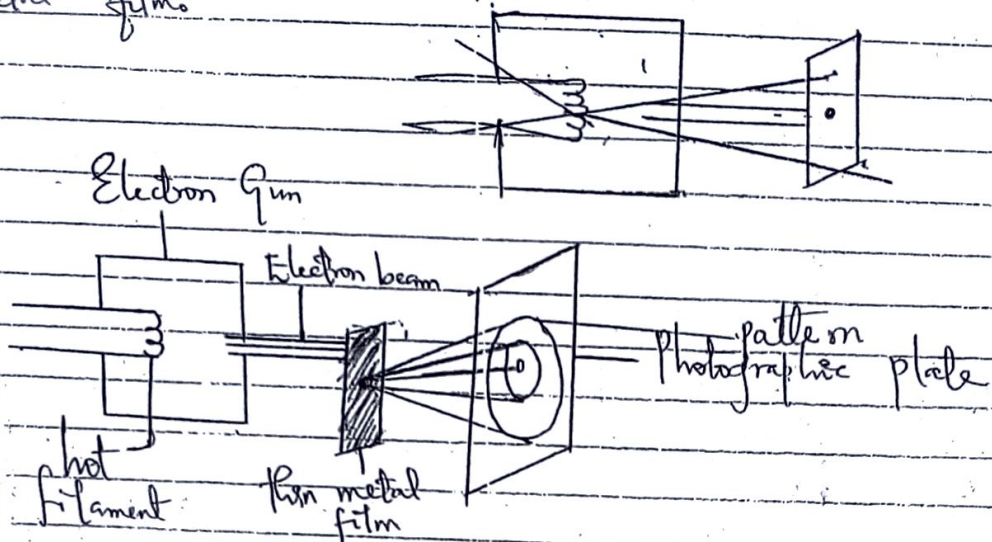 film.
Electron Gun
Electron beam
pattern
Photographic plate
hot
filament
thin metal
film